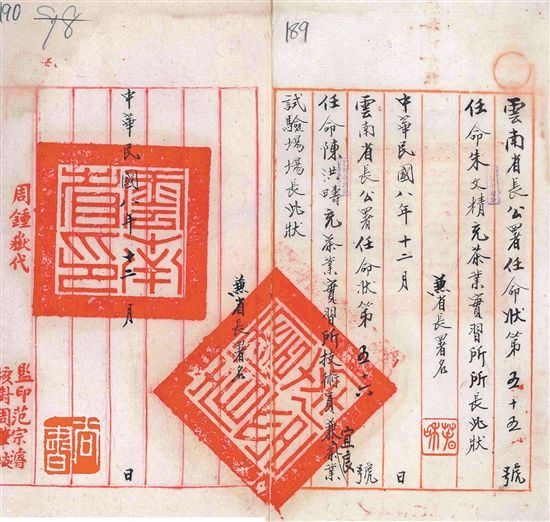 190
98
189
雲南省長公署任命狀第五十五號
任命朱文精充茶業實習所所長此狀
兼省長署名
中華民國八年十二月 日
雲南省長公署任命狀第五十六號
宜良
任命陳洪疇充茶業實習所技術員兼茶業
試驗場場長此狀
兼省長署名
中華民國八年十二月 日
雲南省印
周鍾嶽代
監印范宗
校對周